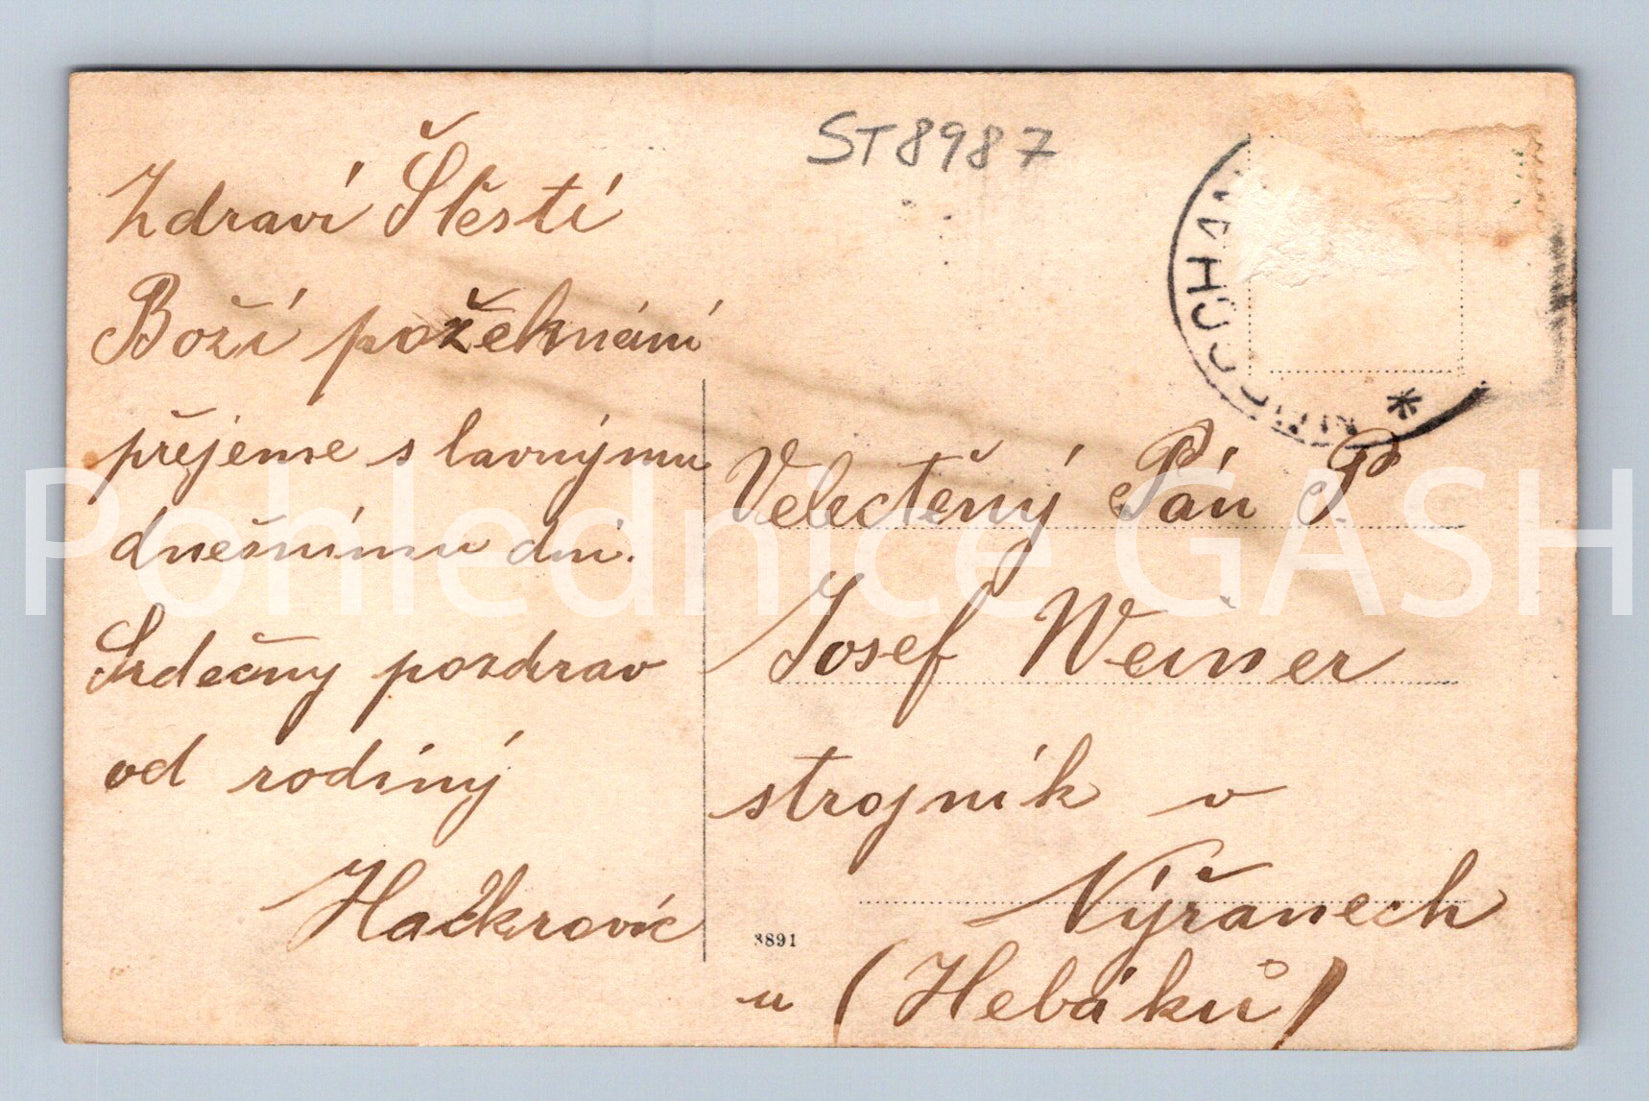 ST8987
Zdraví Štěstí
Boží požeknání
přejeme s lavnýmu
dnešnímu dni.
Srdečny pozdrav
od rodiný
Hačkrovic
Velectěný Pán P.
Josef Weiner
strojník v
Výřanech
u (Hebáků)
3891
Pohlednice GASH